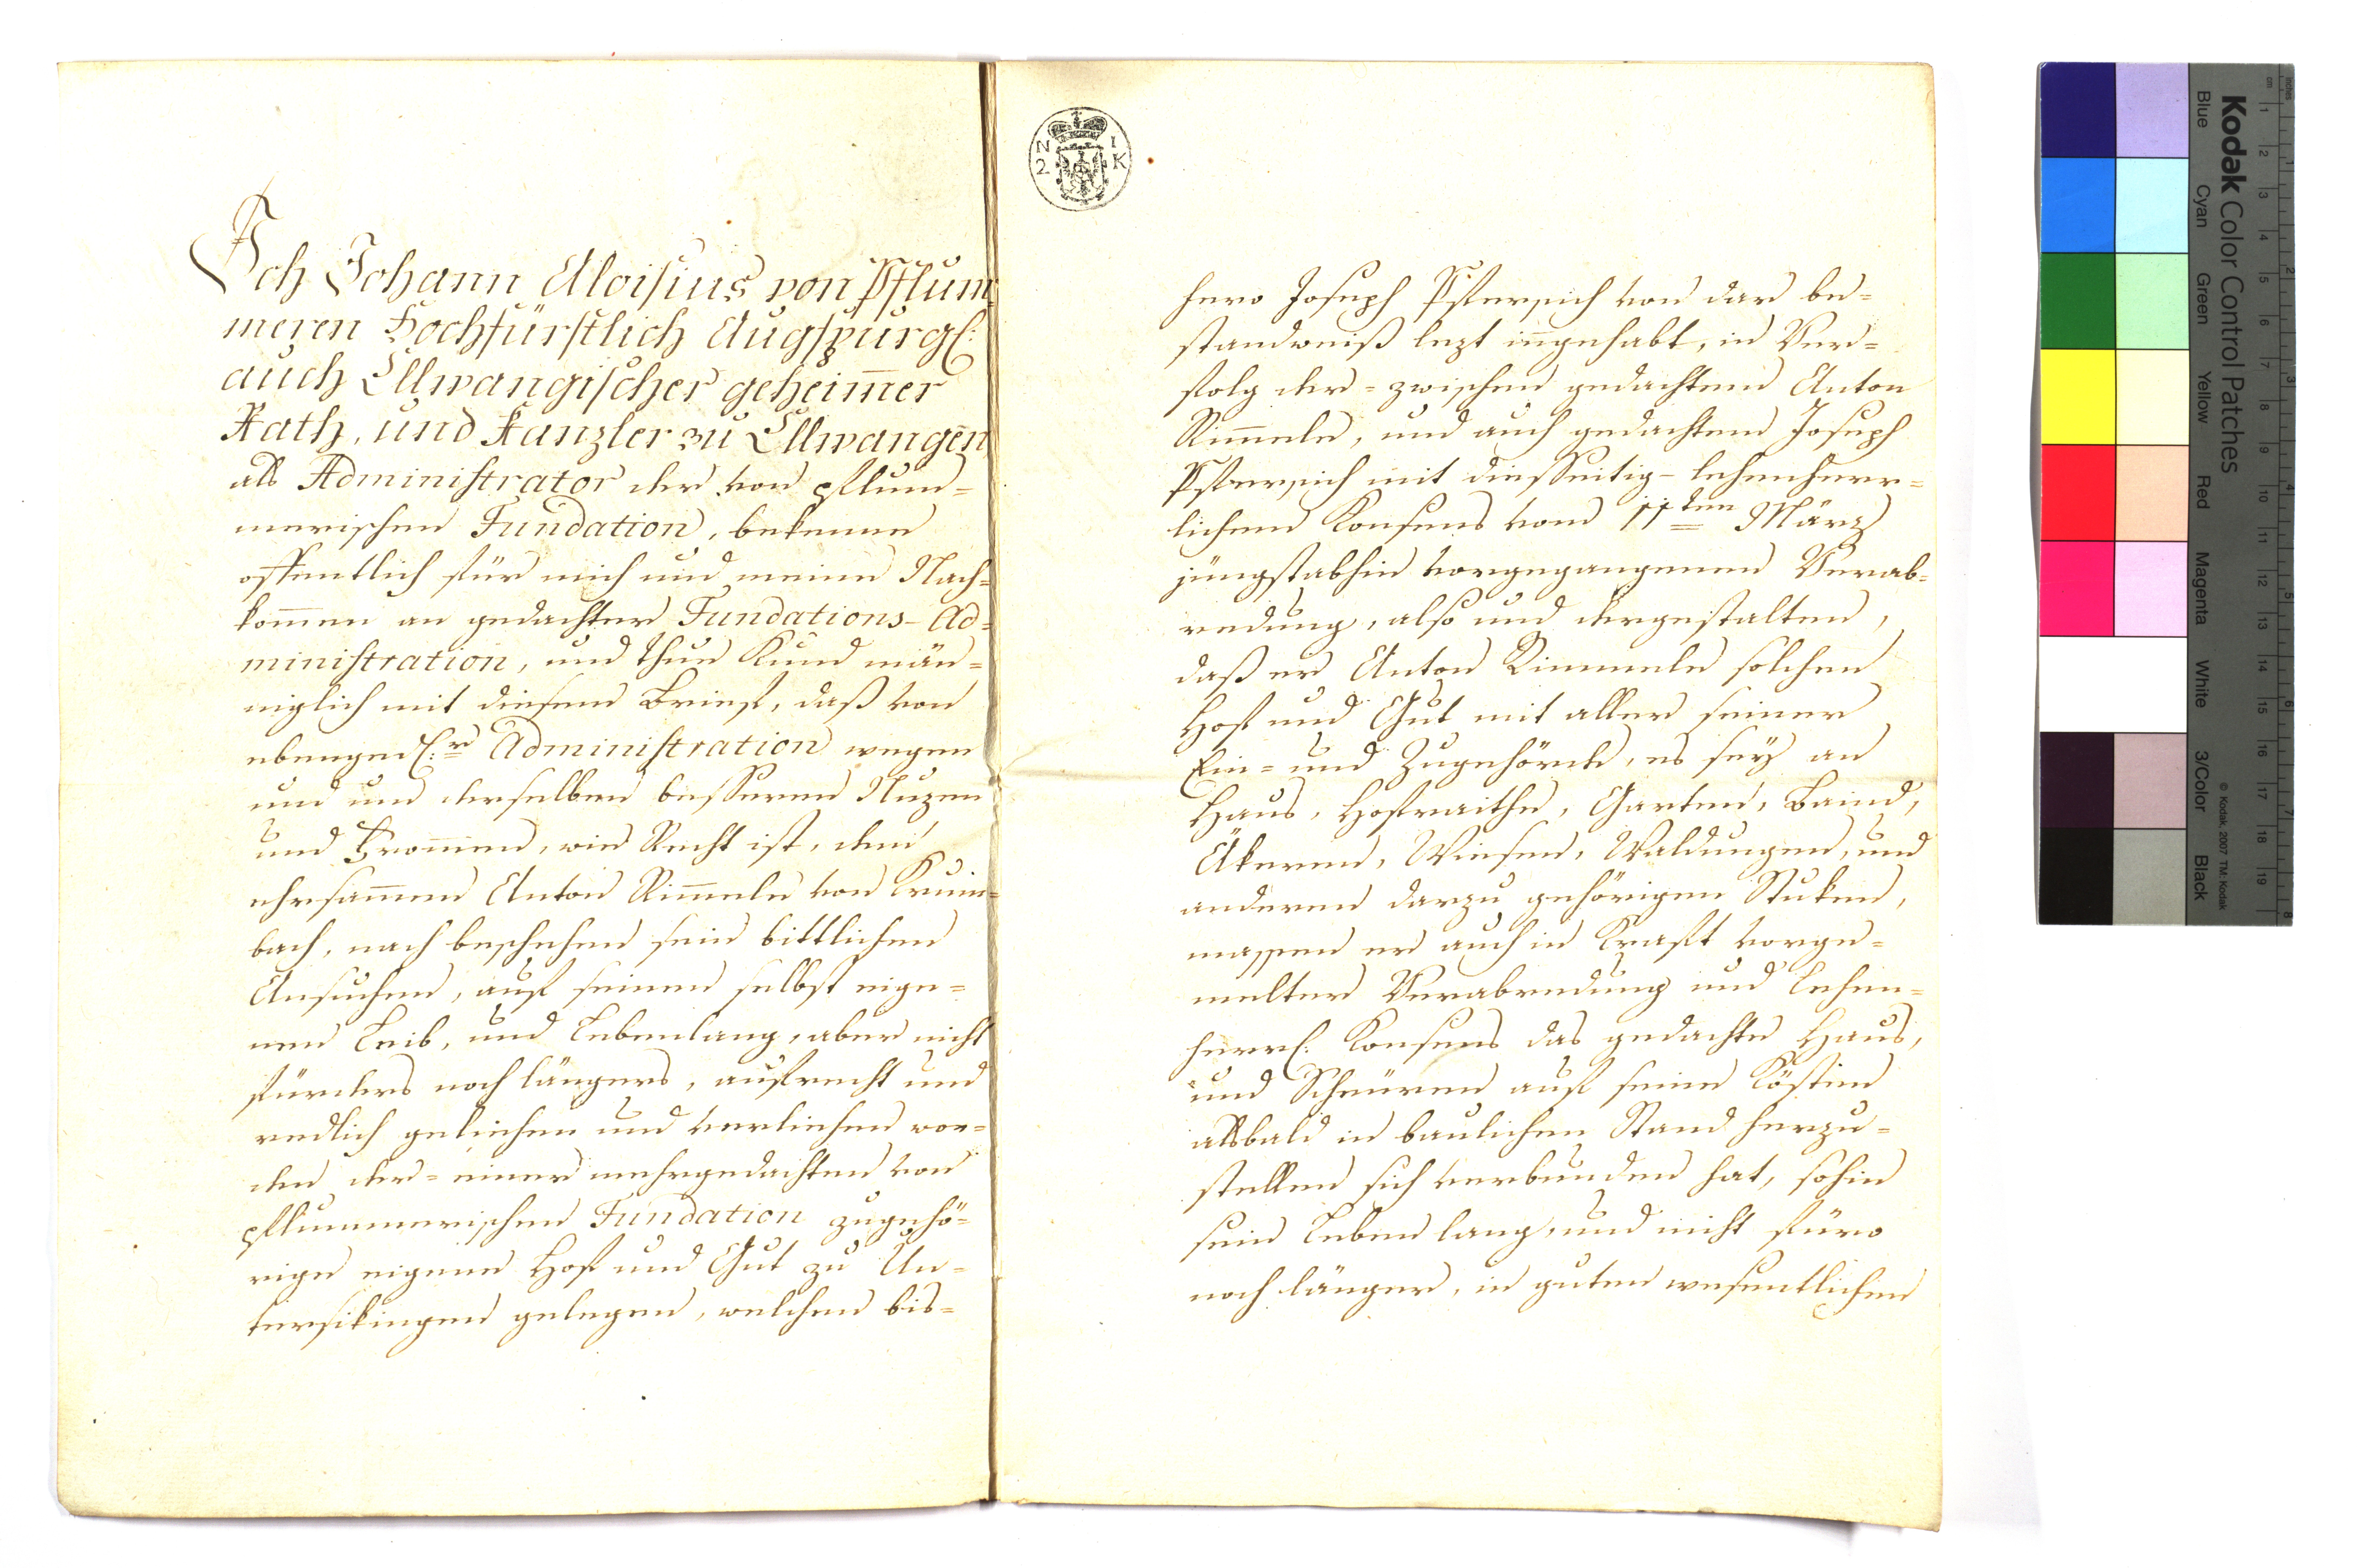 Ich Johann Aloisius von Pflum
meren Hochfürstlich Augspurgl:
auch Ellwangischer geheim̄er
Rath, und Kanzler zu Ellwangen
als Administrator der von pflum=
merischen Fundation, bekenne
offentlich für mich und meine Nach=
kom̄en an gedachter Fundations-Ad=
ministration, und thue Kund män=
niglich mit diesem Brief, daß von
ebengedl:r Administration wegen
und um derselben besseren Nuzen
und From̄en, wie Recht ist, dem
ehrsam̄en Anton Rim̄ele von Krum=
bach, nach beschehen sein bittlichen
Ansuchen, auf seinen selbst eige=
nen Leib, und Lebenlang, aber nicht
fürders noch längers, aufrecht und
redlich geliehen und verliehen wor=
den der= einer mehrgedachten von
pflummerischen Fundation zugehö=
rige eigene Hof und Gut zu Un=
tersikingen gelegen, welchen bis=
N 1
2 K
hero Joseph Pfersich von dar be=
standweiß lezt in̄gehabt, in Ver=
folg der= zwischen gedachtem Anton
Rim̄ele, und auch gedachtem Joseph
Pfersich mit diesseitig- lehenherr=
lichem Konsens vom 11ten März
jüngstabhin vorgegangenen Verab=
redung, also und dergestalten,
daß er Anton Rimmele solchen
Hof und Gut mit aller seiner
Ein= und Zugehörde, es sey an
Haus, Hofraithe, Garten, Baind,
Äkeren, Wiesen, Waldungen, und
anderen darzu gehörigen Stuken,
massen er auch in Kraft vorge=
melter Verabredung und Lehen=
herrl: Konsens das gedachte Haus,
und Scheüren auf seine Kösten
alsbald in baulichen Stand herzu=
stellen sich verbunden hat, sohin
sein Leben lang, und nicht füro
noch länger, in guten wesentlichen
Kodak Color Control Patches
Blue Cyan Green Yellow Red Magenta White 3/Color Black
© Kodak, 2007 TM: Kodak
inches
cm 1 2 3 4 5 6 7 8 9 10 11 12 13 14 15 16 17 18 19
1 2 3 4 5 6 7 8